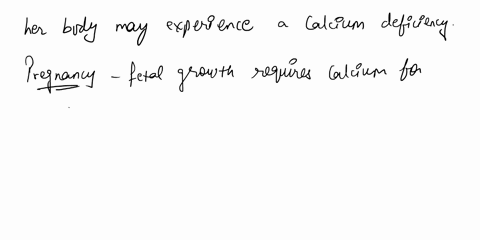 her body may experience a calcium deficiency.
Pregnancy - fetal growth requires calcium for